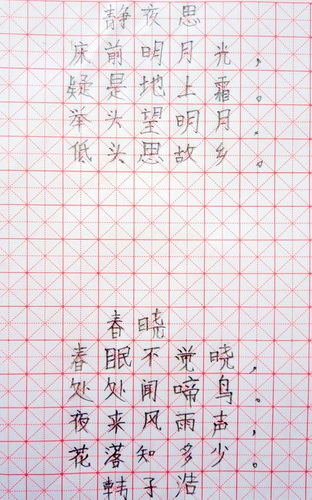 静夜思
床前明月光，
疑是地上霜。
举头望明月.
低头思故乡。
春晓
春眠不觉晓，
处处闻啼鸟。
夜来风雨声，
花落知多少。
韩子浩